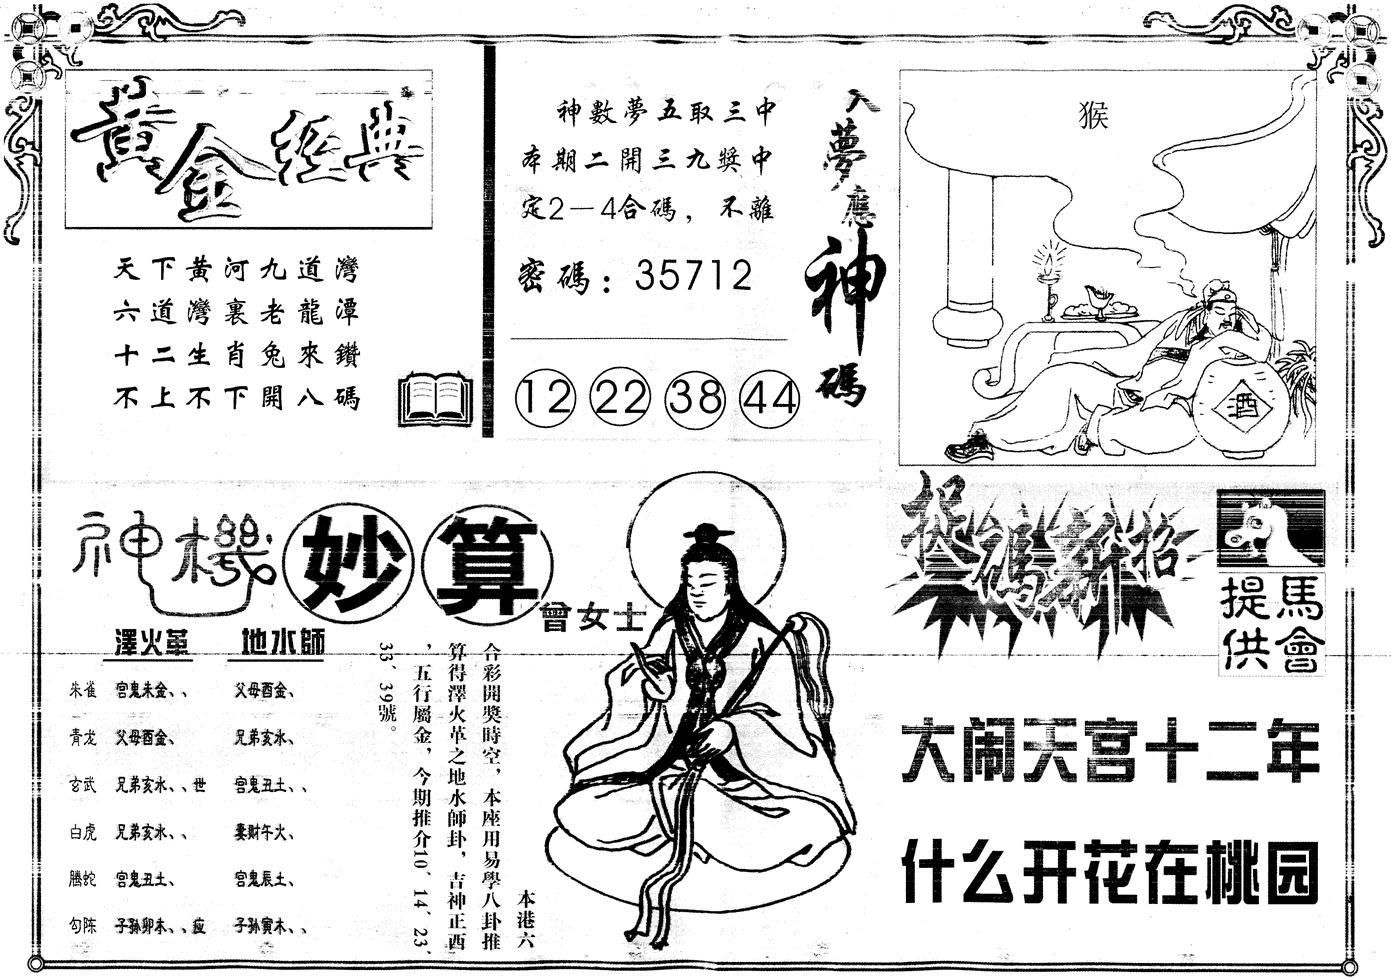 黃金經典
天下黃河九道灣
六道灣裏老龍潭
十二生肖兔來鑽
不上不下開八碼
神數夢五取三中
本期二開三九獎中
定2－4合碼，不離
密碼：35712
12 22 38 44
入夢應神碼
猴
酒
神機妙算
曾女士
澤火革 地水師
朱雀 官鬼未金、、 父母酉金、
青龙 父母酉金、 兄弟亥水、
玄武 兄弟亥水、、世 官鬼丑土、、
白虎 兄弟亥水、、 妻財午火、
騰蛇 官鬼丑土、 官鬼辰土、
勾陈 子孙卯木、、应 子孙寅木、、
本港六
合彩開獎時空，本座用易學八卦推
算得澤火革之地水師卦，吉神正酉
，五行屬金，今期推介10、14、23、
33、39號。
捉碼新招
馬會
提供
大闹天宫十二年
什么开花在桃园